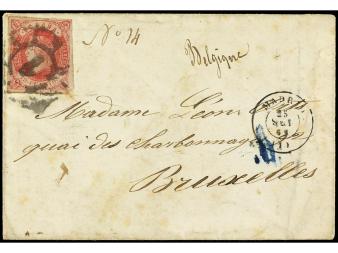 Nº 14
Belgique
Madame Léon
quai des charbonnages
Bruxelles
MADRID
25